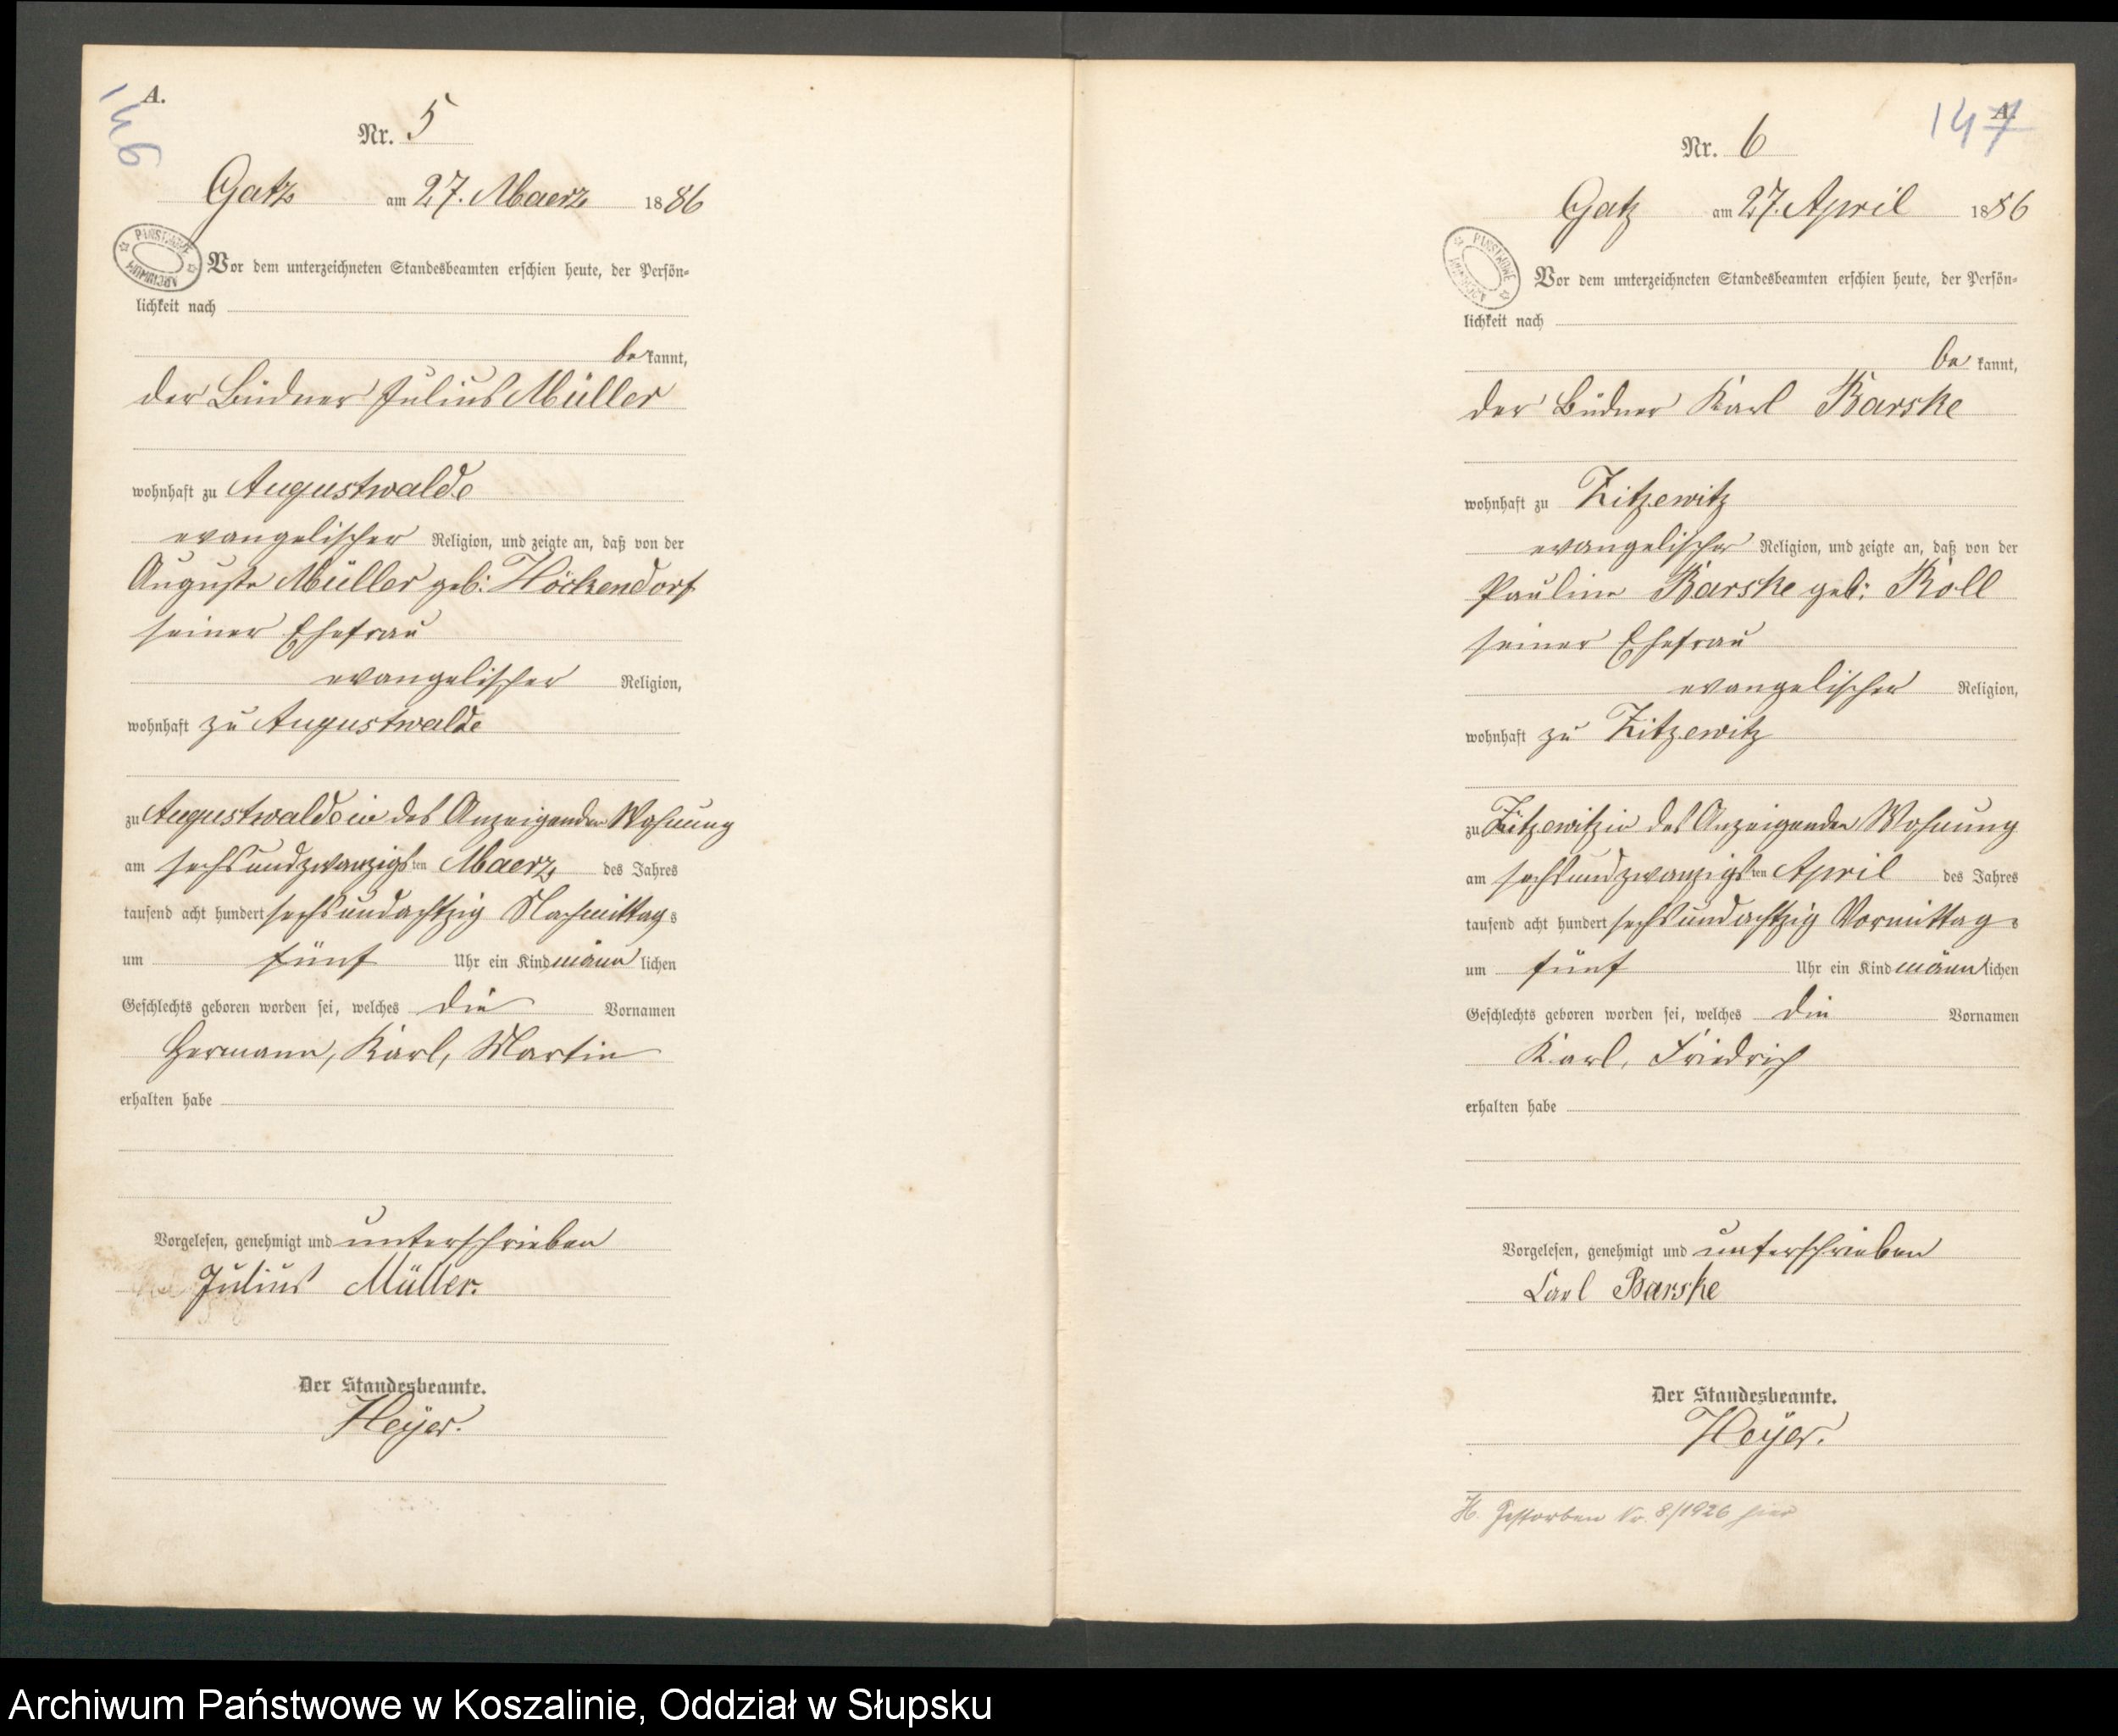 146
A.
Nr. 5
Gatz am 27. Maerz 1886
PAŃSTWOWE ARCHIWUM
Vor dem unterzeichneten Standesbeamten erschien heute, der Persön-
lichkeit nach
bekannt,
der Büdner Julius Müller
wohnhaft zu Augustwalde
evangelischer Religion, und zeigte an, daß von der
Auguste Müller geb: Höckendorf
seiner Ehefrau
evangelischer Religion,
wohnhaft zu Augustwalde
zu Augustwalde in des Anzeigenden Wohnung
am sechsundzwanzigsten Maerz des Jahres
tausend acht hundert sechsundachtzig Nachmittags
um fünf Uhr ein Kind männlichen
Geschlechts geboren worden sei, welches die Vornamen
Hermann, Karl, Martin
erhalten habe
Vorgelesen, genehmigt und unterschrieben
Julius Müller.
Der Standesbeamte.
Heyer.
147
A.
Nr. 6
Gatz am 27. April 1886
PAŃSTWOWE ARCHIWUM
Vor dem unterzeichneten Standesbeamten erschien heute, der Persön-
lichkeit nach
bekannt,
der Büdner Karl Barske
wohnhaft zu Zitzewitz
evangelischer Religion, und zeigte an, daß von der
Pauline Barske geb: Koll
seiner Ehefrau
evangelischer Religion,
wohnhaft zu Zitzewitz
zu Zitzewitz in des Anzeigenden Wohnung
am sechsundzwanzigsten April des Jahres
tausend acht hundert sechsundachtzig Vormittags
um fünf Uhr ein Kind männlichen
Geschlechts geboren worden sei, welches die Vornamen
Karl, Friedrich
erhalten habe
Vorgelesen, genehmigt und unterschrieben
Carl Barske
Der Standesbeamte.
Heyer.
H. Gestorben Nr. 8/1926 hier
Archiwum Państwowe w Koszalinie, Oddział w Słupsku